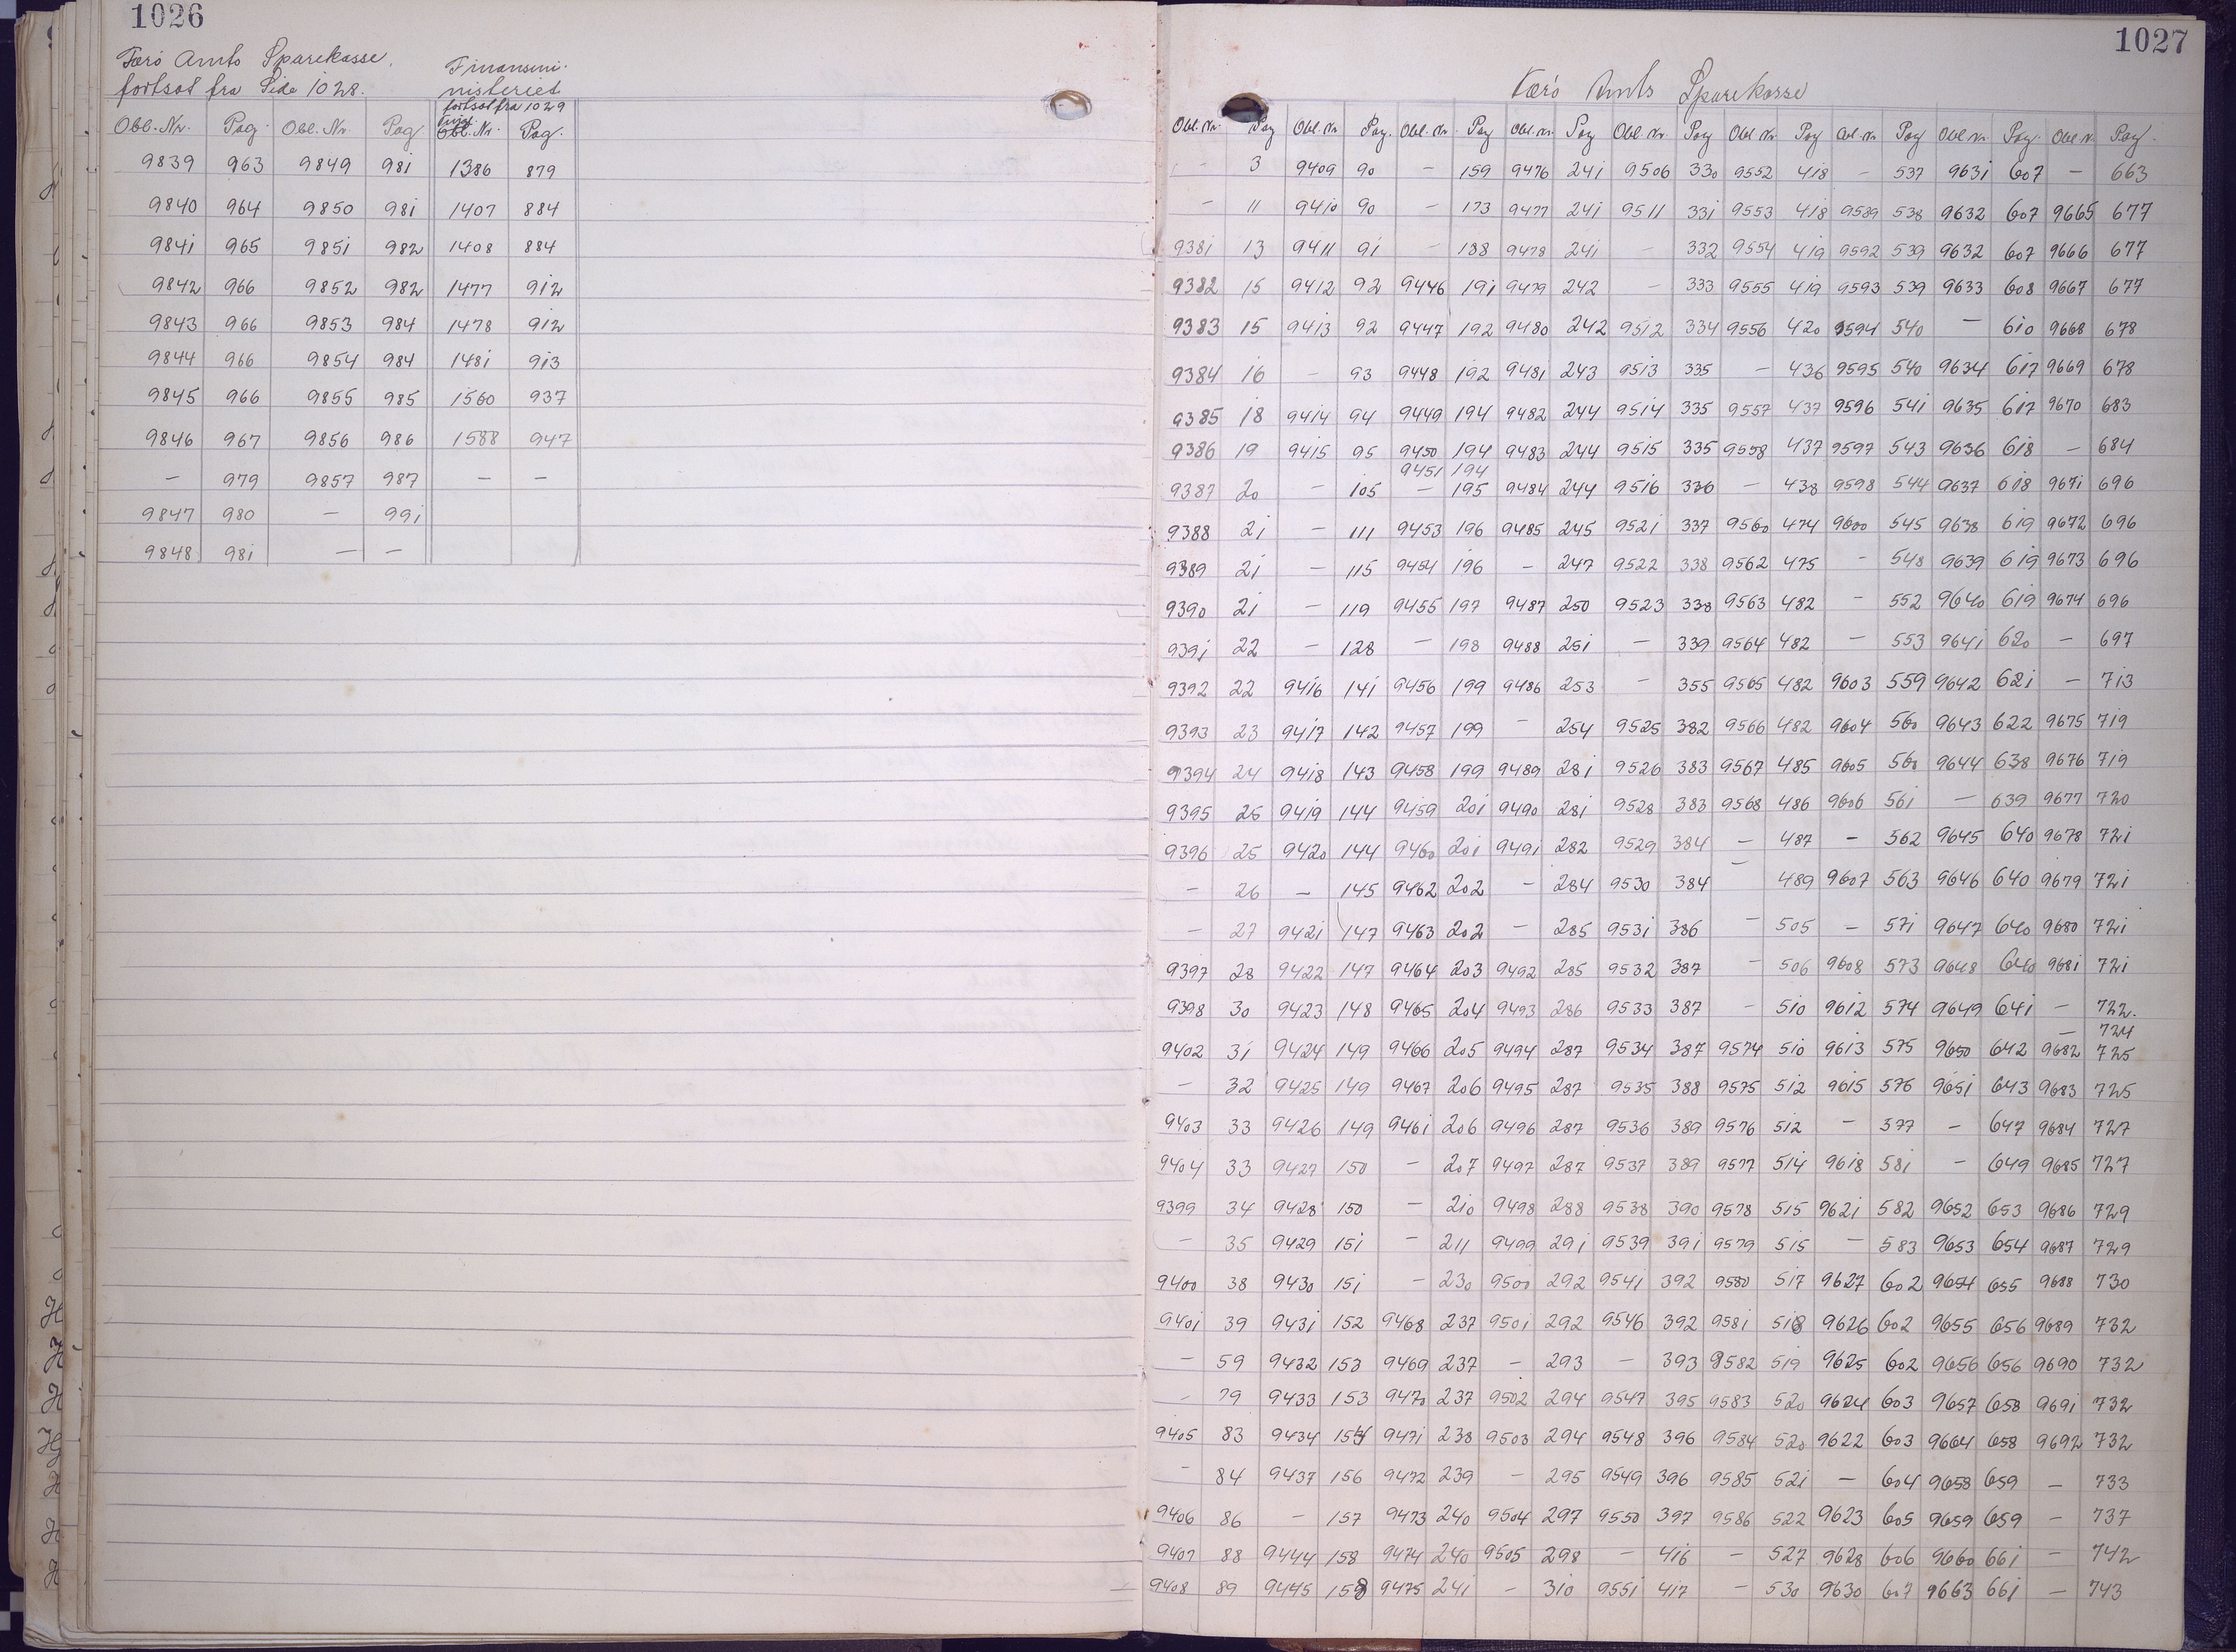 1026
Færö Amts Sparekasse,
fortsat fra Side 1028.
Finansmi-
nisteriet
fortsat fra 1029
Obl. Nr. Pag. Obl. Nr. Pag Obl. Nr. Pag.
9839 963 9849 981 1386 879
9840 964 9850 981 1407 884
9841 965 9851 982 1408 884
9842 966 9852 982 1477 912
9843 966 9853 984 1478 912
9844 966 9854 984 1481 913
9845 966 9855 985 1560 937
9846 967 9856 986 1588 947
— 979 9857 987 — —
9847 980 — 991
9848 981 — —
1027
Færö Amts Sparekasse
Obl. Nr. Pag Obl. Nr Pag. Obl. Nr. Pag Obl. Nr. Pag Obl. Nr. Pag Obl. Nr. Pag Obl. Nr Pag Obl. Nr Pag. Obl. Nr. Pag.
— 3 9409 90 — 159 9476 241 9506 330 9552 418 — 537 9631 607 — 663
— 11 9410 90 — 173 9477 241 9511 331 9553 418 9589 538 9632 607 9665 677
9381 13 9411 91 — 188 9478 241 — 332 9554 419 9592 539 9632 607 9666 677
9382 15 9412 92 9446 191 9479 242 — 333 9555 419 9593 539 9633 608 9667 677
9383 15 9413 92 9447 192 9480 242 9512 334 9556 420 9594 540 — 610 9668 678
9384 16 — 93 9448 192 9481 243 9513 335 — 436 9595 540 9634 617 9669 678
9385 18 9414 94 9449 194 9482 244 9514 335 9557 437 9596 541 9635 617 9670 683
9386 19 9415 95 9450 194 9483 244 9515 335 9558 437 9597 543 9636 618 — 684
9451 194
9387 20 — 105 — 195 9484 244 9516 336 — 438 9598 544 9637 618 9671 696
9388 21 — 111 9453 196 9485 245 9521 337 9560 474 9600 545 9638 619 9672 696
9389 21 — 115 9454 196 — 247 9522 338 9562 475 — 548 9639 619 9673 696
9390 21 — 119 9455 197 9487 250 9523 338 9563 482 — 552 9640 619 9674 696
9391 22 — 128 — 198 9488 251 — 339 9564 482 — 553 9641 620 — 697
9392 22 9416 141 9456 199 9486 253 — 355 9565 482 9603 559 9642 621 — 713
9393 23 9417 142 9457 199 — 254 9525 382 9566 482 9604 560 9643 622 9675 719
9394 24 9418 143 9458 199 9489 281 9526 383 9567 485 9605 560 9644 638 9676 719
9395 25 9419 144 9459 201 9490 281 9528 383 9568 486 9606 561 — 639 9677 720
9396 25 9420 144 9460 201 9491 282 9529 384 — 487 — 562 9645 640 9678 721
— 26 — 145 9462 202 — 284 9530 384 — 489 9607 563 9646 640 9679 721
— 27 9421 147 9463 202 — 285 9531 386 — 505 — 571 9647 640 9680 721
9397 28 9422 147 9464 203 9492 285 9532 387 — 506 9608 573 9648 640 9681 721
9398 30 9423 148 9465 204 9493 286 9533 387 — 510 9612 574 9649 641 — 722.
— 724
9402 31 9424 149 9466 205 9494 287 9534 387 9574 510 9613 575 9650 642 9682 725
— 32 9425 149 9467 206 9495 287 9535 388 9575 512 9615 576 9651 643 9683 725
9403 33 9426 149 9461 206 9496 287 9536 389 9576 512 — 577 — 647 9684 727
9404 33 9427 150 — 207 9497 287 9537 389 9577 514 9618 581 — 649 9685 727
9399 34 9428 150 — 210 9498 288 9538 390 9578 515 9621 582 9652 653 9686 729
— 35 9429 151 — 211 9499 291 9539 391 9579 515 — 583 9653 654 9687 729
9400 38 9430 151 — 230 9500 292 9541 392 9580 517 9627 602 9654 655 9688 730
9401 39 9431 152 9468 237 9501 292 9546 392 9581 518 9626 602 9655 656 9689 732
— 59 9432 153 9469 237 — 293 — 393 9582 519 9625 602 9656 656 9690 732
— 79 9433 153 9470 237 9502 294 9547 395 9583 520 9624 603 9657 658 9691 732
9405 83 9434 154 9471 238 9503 294 9548 396 9584 520 9622 603 9664 658 9692 732
— 84 9437 156 9472 239 — 295 9549 396 9585 521 — 604 9658 659 — 733
9406 86 — 157 9473 240 9504 297 9550 397 9586 522 9623 605 9659 659 — 737
9407 88 9444 158 9474 240 9505 298 — 416 — 527 9628 606 9660 661 — 742
9408 89 9445 158 9475 241 — 310 9551 417 — 530 9630 607 9663 661 — 743